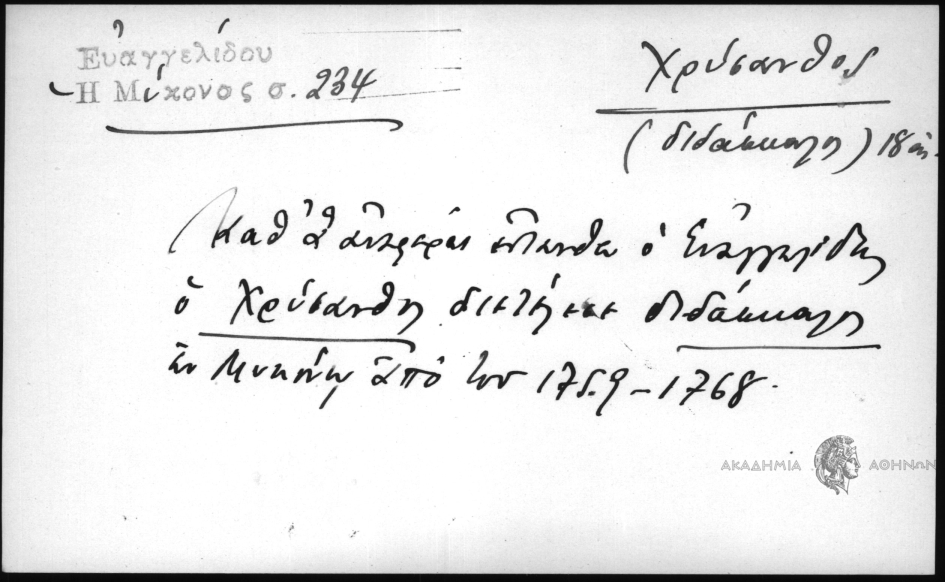 Εὐαγγελίδου
Ἡ Μύκονος σ. 234
Χρύσανθος
(διδάσκαλος) 18 αι.
Καθ' ἃ ἀναφέρει ἐνταῦθα ὁ Εὐαγγελίδης
ὁ Χρύσανθος διετέλεσε διδάσκαλος
ἐν Μυκόνῳ ἀπὸ του 1759-1768.
ΑΚΑΔΗΜΙΑ ΑΘΗΝΩΝ